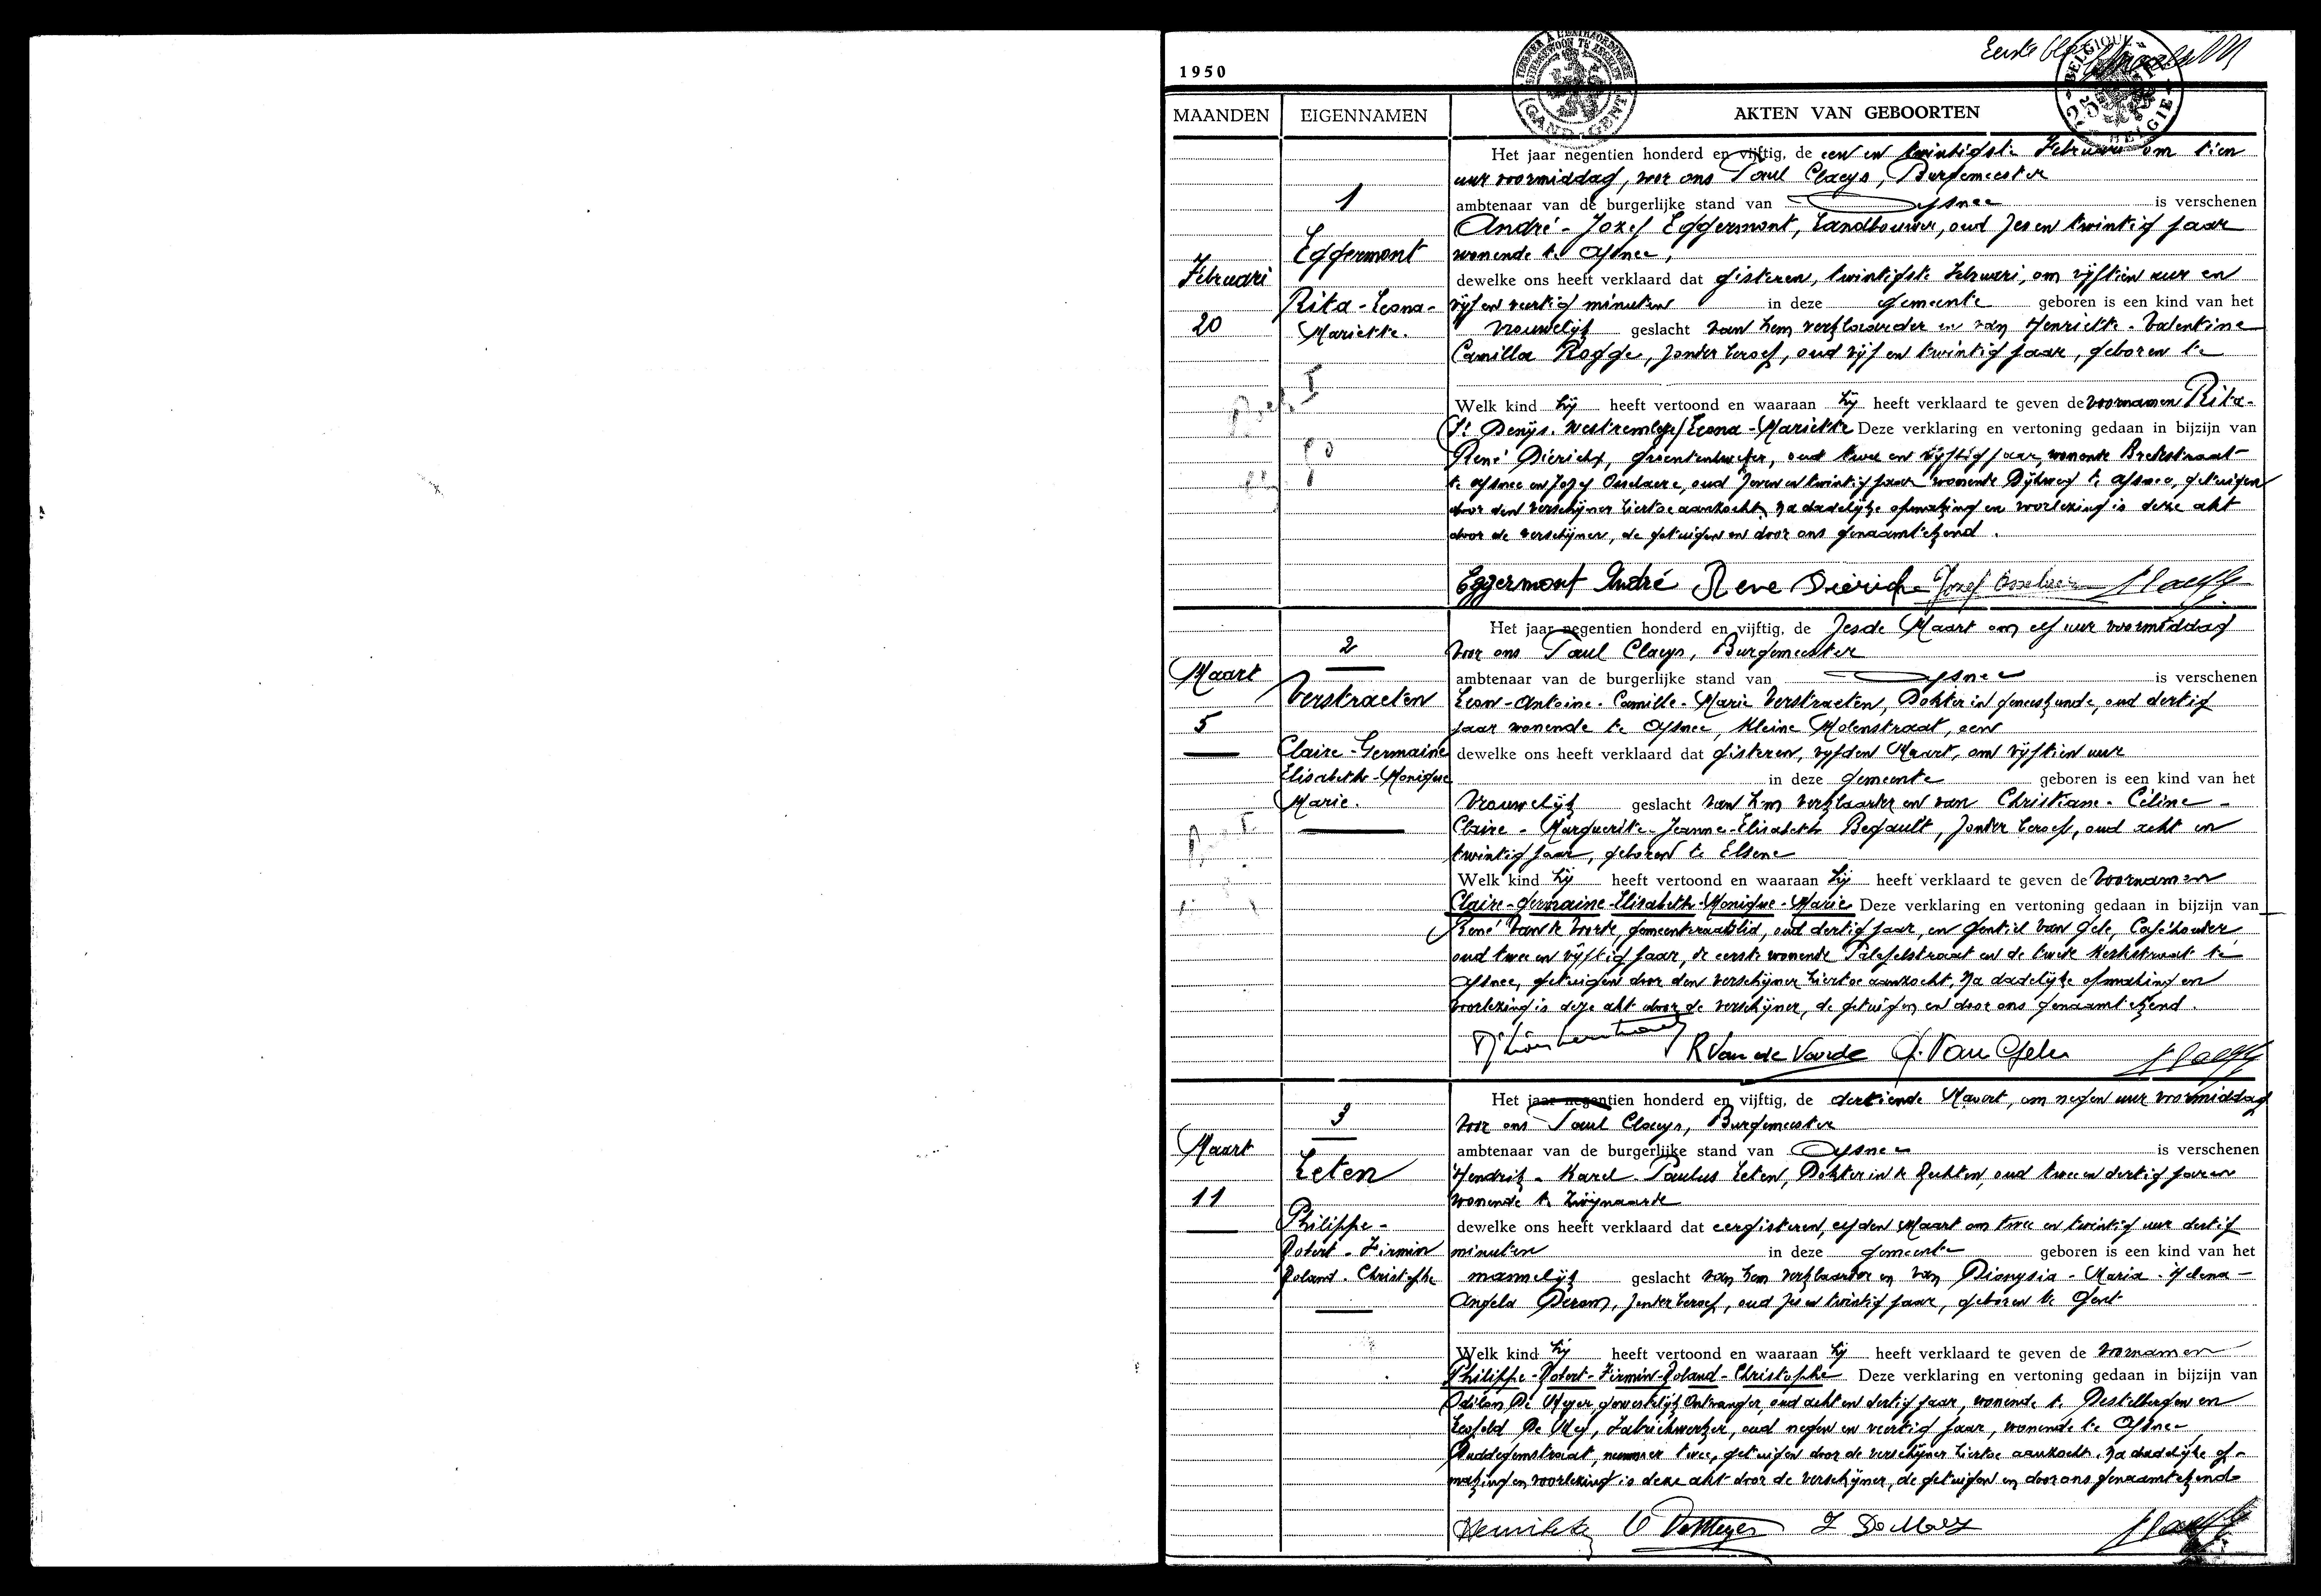 Eerste
1950
TIMBRER A L'EXTRAORDINAIRE
GAND - GENT
BELGIQUE
BELGIE
MAANDEN
EIGENNAMEN
AKTEN VAN GEBOORTEN
Februari
20
1
Eggermont
Rita-Leona-
Mariette.
Het jaar negentien honderd en vijftig, de een en twintigste Februari om tien
uur voormiddag, voor ons Paul Claeys, Burgemeester
ambtenaar van de burgerlijke stand van Afsnee is verschenen
André-Jozef Eggermont, Landbouwer, oud zes en twintig jaar
wonende te Afsnee,
dewelke ons heeft verklaard dat gisteren, twintigste Februari, om vijftien uur en
vijf en veertig minuten in deze gemeente geboren is een kind van het
vrouwelijk geslacht van hem verklaarder en van Henriette-Valentine
Camilla Rogge, zonder beroep, oud vijf en twintig jaar, geboren te
Welk kind hij heeft vertoond en waaraan hij heeft verklaard te geven de voornamen Rita-
St Denijs-Westremlege/Leona-Mariette Deze verklaring en vertoning gedaan in bijzijn van
René Dierickx, groentenkweker, oud twee en vijftig jaar, wonende Broekstraat
te Afsnee en Jozef Osselaere, oud zeven en twintig jaar wonende Dijkweg te Afsnee, getuigen
door den verschijner hiertoe aanzocht, Na dadelijke opmaking en voorlezing is deze akt
door de verschijner, de getuigen en door ons genaamtekend.
Eggermont André Rene Dierick Jozef Osselaere Claeys
Maart
5
2
Verstraeten
Claire-Germaine
Elisabeth-Monique
Marie.
Het jaar negentien honderd en vijftig, de zesde Maart om elf uur voormiddag
Voor ons Paul Claeys, Burgemeester
ambtenaar van de burgerlijke stand van Afsnee is verschenen
Leon-Antoine-Camille-Marie Verstraeten, Dokter in geneeskunde, oud dertig
jaar wonende te Afsnee, Kleine Molenstraat, een
dewelke ons heeft verklaard dat gisteren, vijfden Maart, om vijftien uur
in deze gemeente geboren is een kind van het
Vrouwelijk geslacht van hem verklaarder en van Christiane-Céline-
Claire-Marguerite-Jeanne-Elisabeth Begault, zonder beroep, oud acht en
twintig jaar, geboren te Elsene
Welk kind hij heeft vertoond en waaraan hij heeft verklaard te geven de Voornamen
Claire-Germaine-Elisabeth-Monique-Marie Deze verklaring en vertoning gedaan in bijzijn van
René Van de Voorde, gemeenteraadslid, oud dertig jaar, en Gentiel Van Gele, Caféhouder,
oud twee en vijftig jaar, de eerste wonende en de tweede Kerkstraat te
Afsnee, getuigen door den verschijner hiertoe aanzocht, Na dadelijke opmaking en
voorlezing is deze akt door de verschijner, de getuigen en door ons genaamtekend.
R Van de Voorde G. Van Gele Claeys
Maart
11
3
Leten
Philippe-
Robert-Firmin
Roland-Christophe
Het jaar negentien honderd en vijftig, de dertiende Maart, om negen uur voormiddag
Voor ons Paul Claeys, Burgemeester
ambtenaar van de burgerlijke stand van Afsnee is verschenen
Hendrik-Karel-Paulus Leten, Dokter in de Rechten, oud twee en dertig jaren
wonende te Zwijnaarde
dewelke ons heeft verklaard dat eergisteren, elfden Maart om twee en twintig uur dertig
minuten in deze gemeente geboren is een kind van het
mannelijk geslacht van hem verklaarder en van Dionysia-Maria-Helena-
Angela Derom, zonder beroep, oud zes en twintig jaar, geboren te Gent
Welk kind hij heeft vertoond en waaraan hij heeft verklaard te geven de voornamen
Philippe-Robert-Firmin-Roland-Christophe Deze verklaring en vertoning gedaan in bijzijn van
Odilon De Meyer, gewestelijk Ontvanger, oud acht en dertig jaar, wonende te Destelbergen en
Leopold De Mey, Fabriekwerker, oud negen en veertig jaar, wonende te Afsnee
Duddegemstraat, nummer twee, getuigen door de verschijner hiertoe aanzocht. Na dadelijke op-
making en voorlezing is deze akt door de verschijner, de getuigen en door ons genaamtekend
O DeMeyer L DeMey Claeys